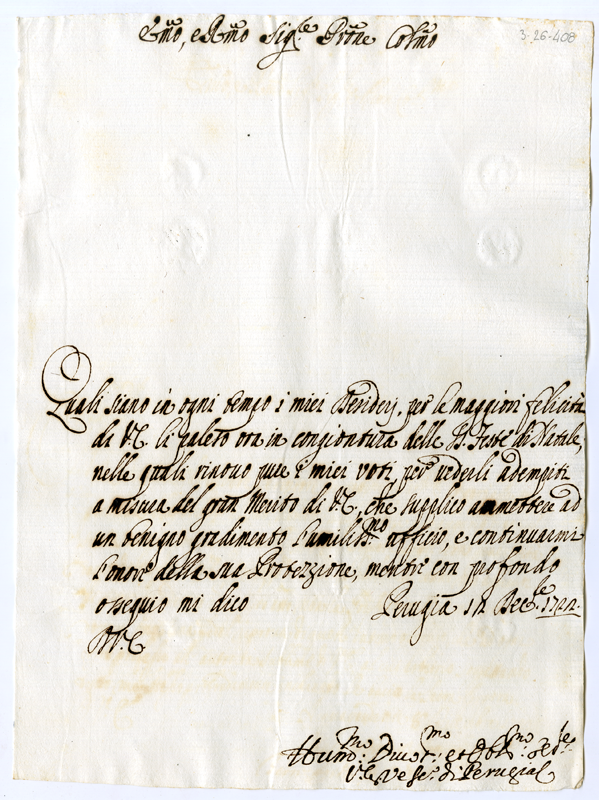 Emo, e Rmo Sig.re Prone Colmo
3-26-408
Quali siano in ogni tempo i miei Desiderj, per le maggiori felicità
di V.E. li paleso ora in congiontura delle S. Feste di Natale,
nelle quali rinovo pure i miei voti, per vederli adempiti
a misura del gran Merito di V.E., che supplico ammettere ad
un benigno gradimento l'umiliss.mo ufficio, e continuarmi
l'onore della sua Protezzione, mentre con profondo
ossequio mi dico Perugia 12 Dec.re 1722.
D.V.E.
Hum.mo Divot.mo et Obl.mo
V. Ves.o di Perugia